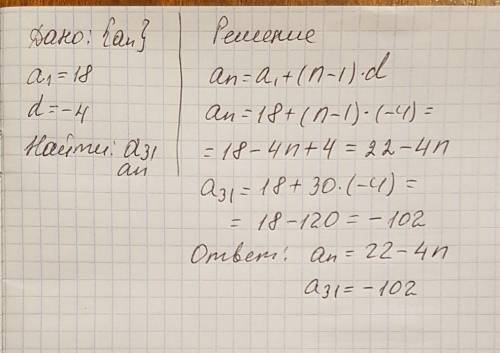 Дано: {an}
a₁ = 18
d = -4
Найти: a₃₁
an
Решение
an = a₁ + (n-1)·d
an = 18 + (n-1)·(-4) =
= 18 - 4n + 4 = 22 - 4n
a₃₁ = 18 + 30·(-4) =
= 18 - 120 = -102
Ответ: an = 22 - 4n
a₃₁ = -102